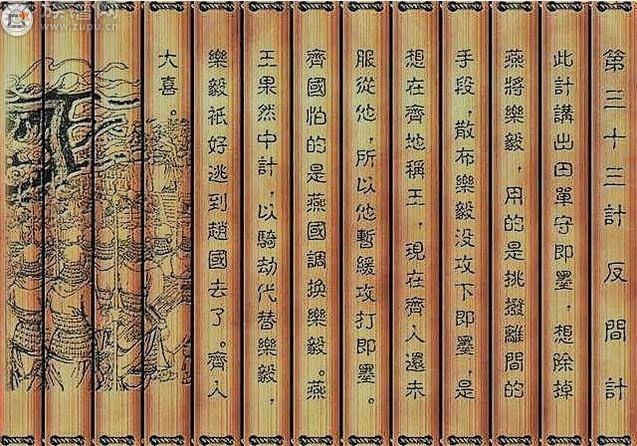 第三十三計 反間計
此計講出田單守即墨，想除掉
燕將樂毅，用的是挑撥離間的
手段，散布樂毅没攻下即墨，是
想在齊地稱王，現在齊人還未
服從他，所以他暫緩攻打即墨。
齊國怕的是燕國調換樂毅。燕
王果然中計，以騎劫代替樂毅，
樂毅祇好逃到趙國去了。齊人
大喜。
族谱网
www.zupu.cn